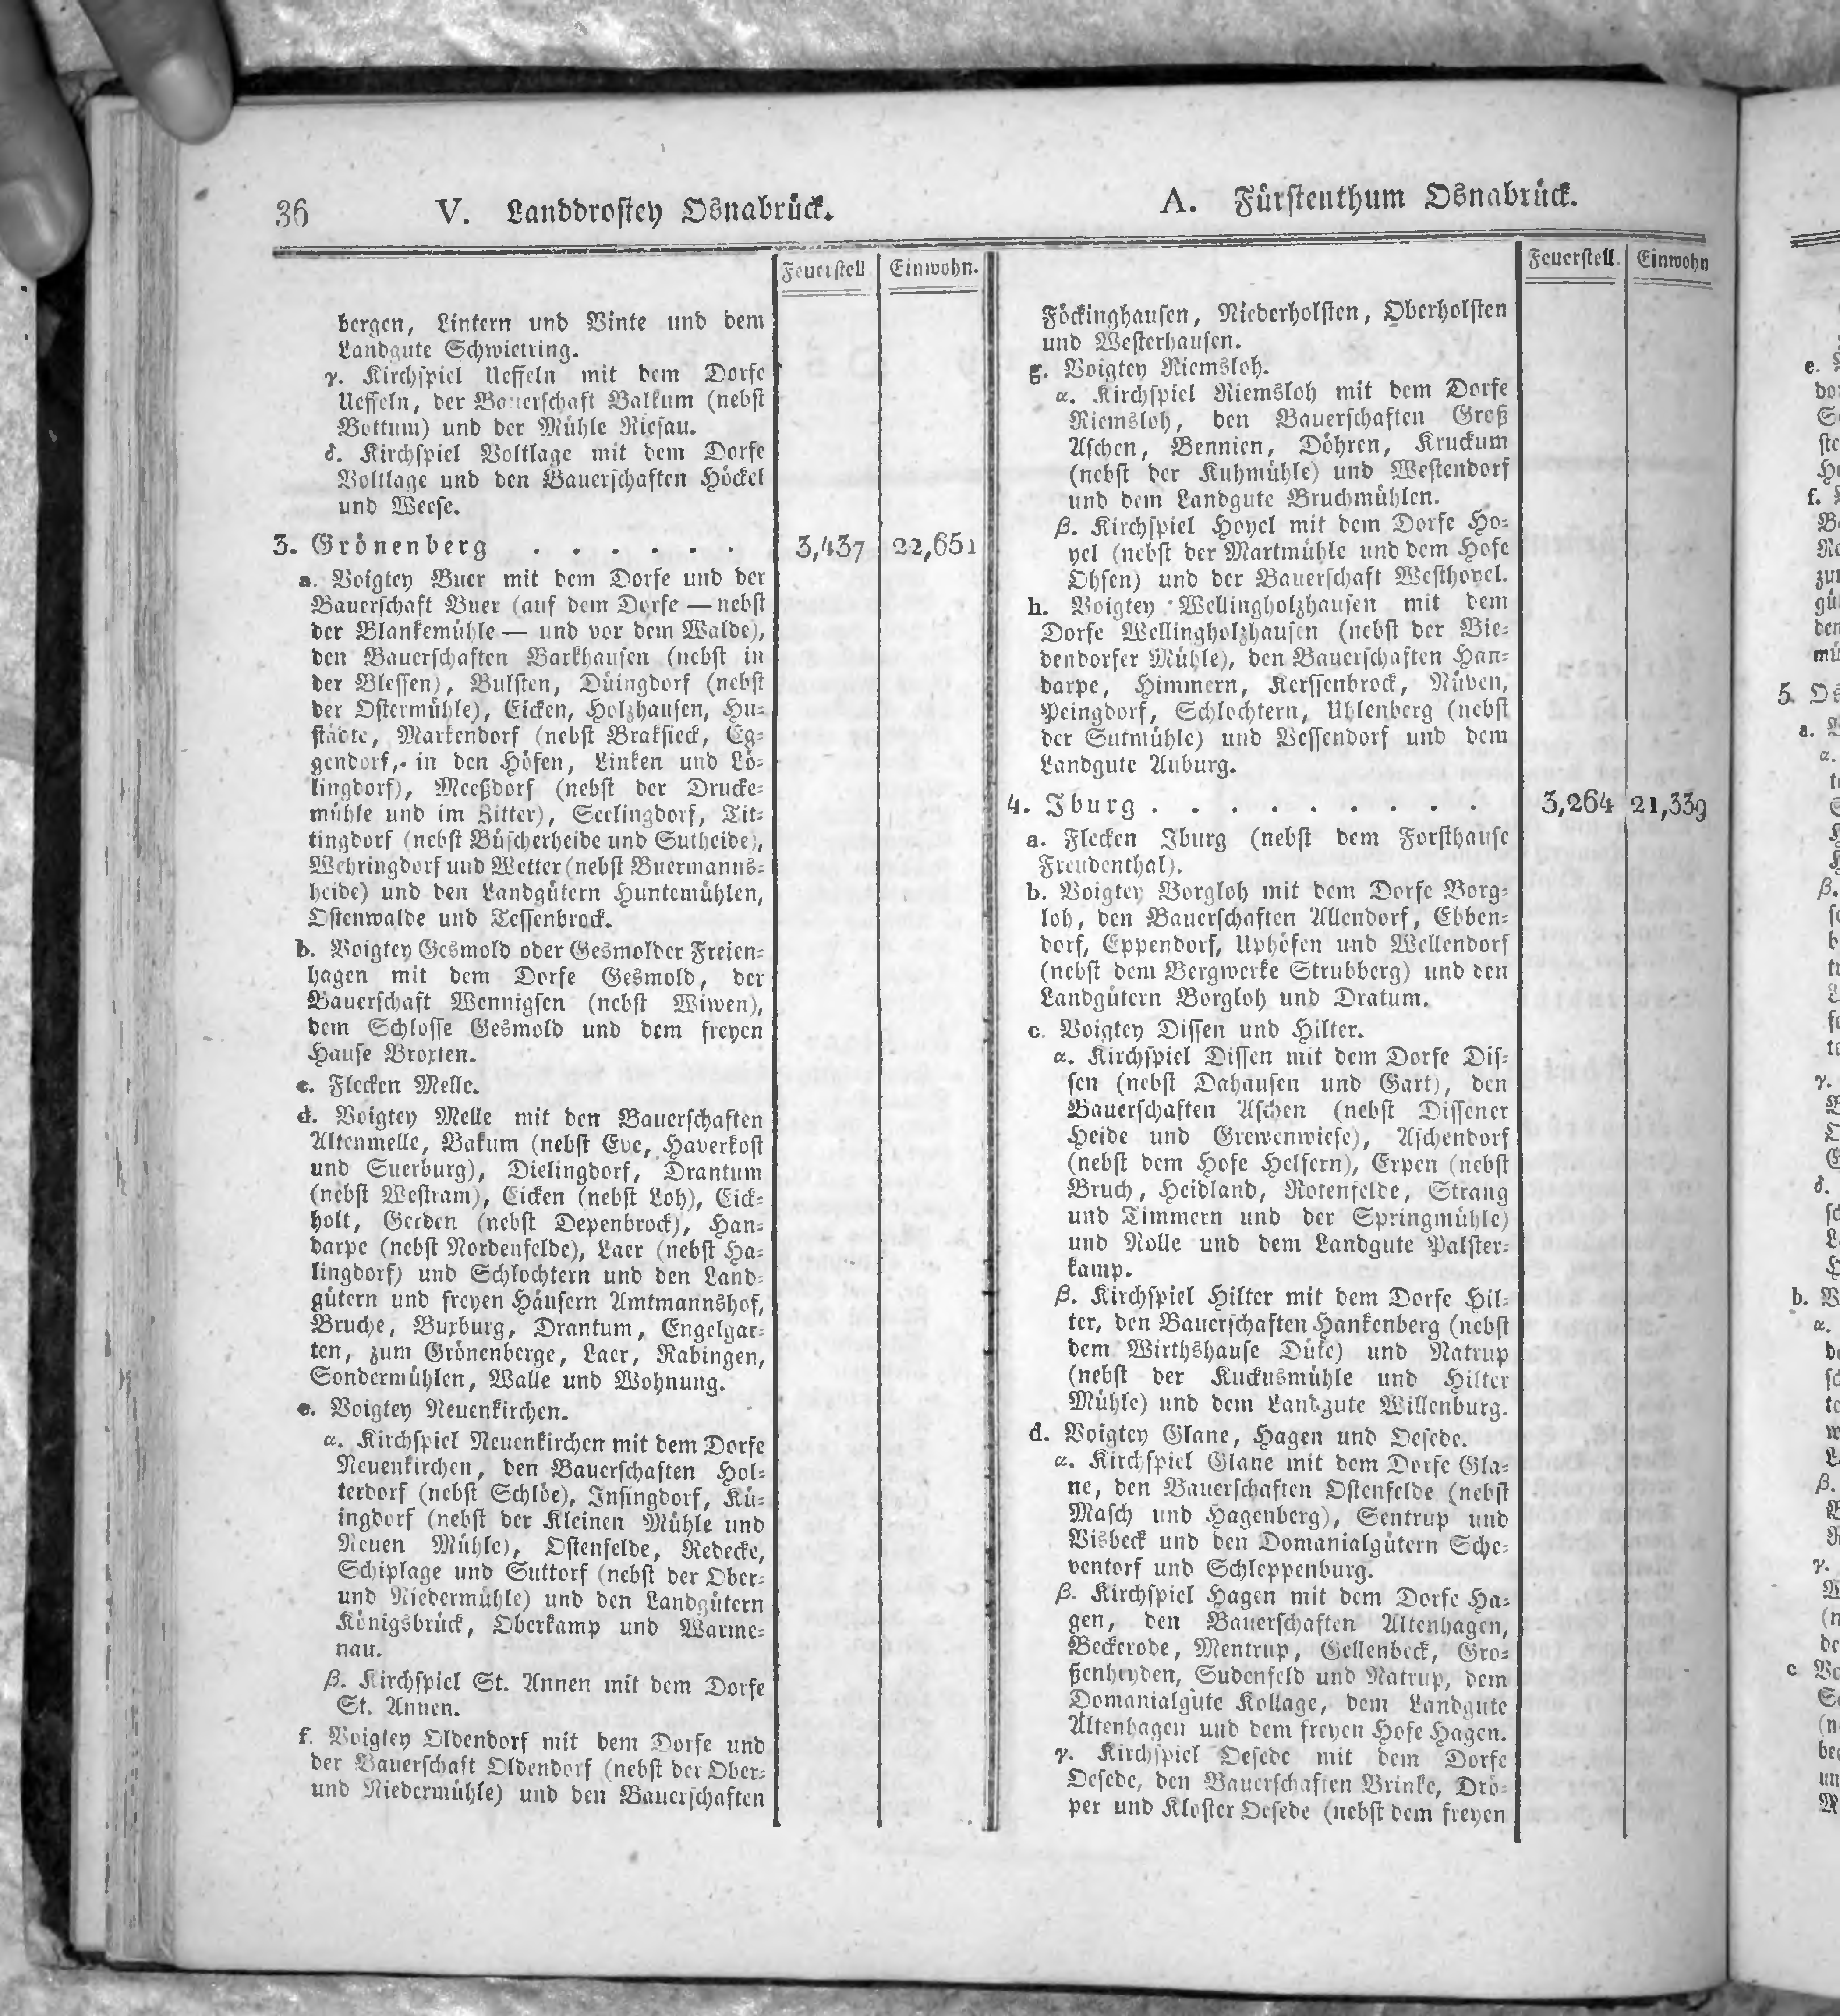 36 V. Landdrostey Osnabrück.
Feuerstell Einwohn.
bergen, Lintern und Vinte und dem
Landgute Schwietring.
γ. Kirchspiel Ueffeln mit dem Dorfe
Ueffeln, der Bauerschaft Balkum (nebst
Bottum) und der Mühle Riesau.
δ. Kirchspiel Voltlage mit dem Dorfe
Voltlage und den Bauerschaften Höckel
und Weese.
3. Grönenberg . . . . . . 3,437 22,651
a. Voigtey Buer mit dem Dorfe und der
Bauerschaft Buer (auf dem Dorfe — nebst
der Blankemühle — und vor dem Walde),
den Bauerschaften Barkhausen (nebst in
der Blessen), Bulsten, Düingdorf (nebst
der Ostermühle), Eicken, Holzhausen, Hu=
städte, Markendorf (nebst Braksieck, Eg=
gendorf, in den Höfen, Linken und Lö=
lingdorf), Meeßdorf (nebst der Drucke=
mühle und im Zitter), Seelingdorf, Tit=
tingdorf (nebst Büscherheide und Sutheide),
Wehringdorf und Wetter (nebst Buermanns=
heide) und den Landgütern Huntemühlen,
Ostenwalde und Tessenbrock.
b. Voigtey Gesmold oder Gesmolder Freien=
hagen mit dem Dorfe Gesmold, der
Bauerschaft Wennigsen (nebst Wiwen),
dem Schlosse Gesmold und dem freyen
Hause Broxten.
c. Flecken Melle.
d. Voigtey Melle mit den Bauerschaften
Altenmelle, Bakum (nebst Eve, Haverkost
und Suerburg), Dielingdorf, Drantum
(nebst Westram), Eicken (nebst Loh), Eick=
holt, Gerden (nebst Depenbrock), Han=
darpe (nebst Nordenfelde), Laer (nebst Ha=
lingdorf) und Schlochtern und den Land=
gütern und freyen Häusern Amtmannshof,
Bruche, Buxburg, Drantum, Engelgar=
ten, zum Grönenberge, Laer, Rabingen,
Sondermühlen, Walle und Wohnung.
e. Voigtey Neuenkirchen.
α. Kirchspiel Neuenkirchen mit dem Dorfe
Neuenkirchen, den Bauerschaften Hol=
terdorf (nebst Schlöe), Insingdorf, Kü=
ingdorf (nebst der Kleinen Mühle und
Neuen Mühle), Ostenfelde, Redecke,
Schiplage und Suttorf (nebst der Ober=
und Niedermühle) und den Landgütern
Königsbrück, Oberkamp und Warme=
nau.
β. Kirchspiel St. Annen mit dem Dorfe
St. Annen.
f. Voigtey Oldendorf mit dem Dorfe und
der Bauerschaft Oldendorf (nebst der Ober=
und Niedermühle) und den Bauerschaften
A. Fürstenthum Osnabrück.
Feuerstell. Einwohn
Föckinghausen, Niederholsten, Oberholsten
und Westerhausen.
g. Voigtey Riemsloh.
α. Kirchspiel Riemsloh mit dem Dorfe
Riemsloh, den Bauerschaften Groß
Aschen, Bennien, Döhren, Kruckum
(nebst der Kuhmühle) und Westendorf
und dem Landgute Bruchmühlen.
β. Kirchspiel Hoyel mit dem Dorfe Ho=
yel (nebst der Martmühle und dem Hofe
Ohsen) und der Bauerschaft Westhoyel.
h. Voigtey Wellingholzhausen mit dem
Dorfe Wellingholzhausen (nebst der Bie=
dendorfer Mühle), den Bauerschaften Han=
darpe, Himmern, Kerssenbrock, Nüven,
Peingdorf, Schlochtern, Uhlenberg (nebst
der Sutmühle) und Vessendorf und dem
Landgute Auburg.
4. Iburg . . . . . . . . . 3,264 21,339
a. Flecken Iburg (nebst dem Forsthause
Freudenthal).
b. Voigtey Borgloh mit dem Dorfe Borg=
loh, den Bauerschaften Allendorf, Ebben=
dorf, Eppendorf, Uphöfen und Wellendorf
(nebst dem Bergwerke Strubberg) und den
Landgütern Borgloh und Dratum.
c. Voigtey Dissen und Hilter.
α. Kirchspiel Dissen mit dem Dorfe Dis=
sen (nebst Dahausen und Gart), den
Bauerschaften Aschen (nebst Dissener
Heide und Grewenwiese), Aschendorf
(nebst dem Hofe Helfern), Erpen (nebst
Bruch, Heidland, Rotenfelde, Strang
und Timmern und der Springmühle)
und Nolle und dem Landgute Palster=
kamp.
β. Kirchspiel Hilter mit dem Dorfe Hil=
ter, den Bauerschaften Hankenberg (nebst
dem Wirthshause Düte) und Natrup
(nebst der Kuckusmühle und Hilter
Mühle) und dem Landgute Willenburg.
d. Voigtey Glane, Hagen und Oesede.
α. Kirchspiel Glane mit dem Dorfe Gla=
ne, den Bauerschaften Ostenfelde (nebst
Masch und Hagenberg), Sentrup und
Visbeck und den Domanialgütern Sche=
ventorf und Schleppenburg.
β. Kirchspiel Hagen mit dem Dorfe Ha=
gen, den Bauerschaften Altenhagen,
Beckerode, Mentrup, Gellenbeck, Gro=
ßenheyden, Sudenfeld und Natrup, dem
Domanialgute Kollage, dem Landgute
Altenhagen und dem freyen Hofe Hagen.
γ. Kirchspiel Oesede mit dem Dorfe
Oesede, den Bauerschaften Brinke, Drö=
per und Kloster Oesede (nebst dem freyen